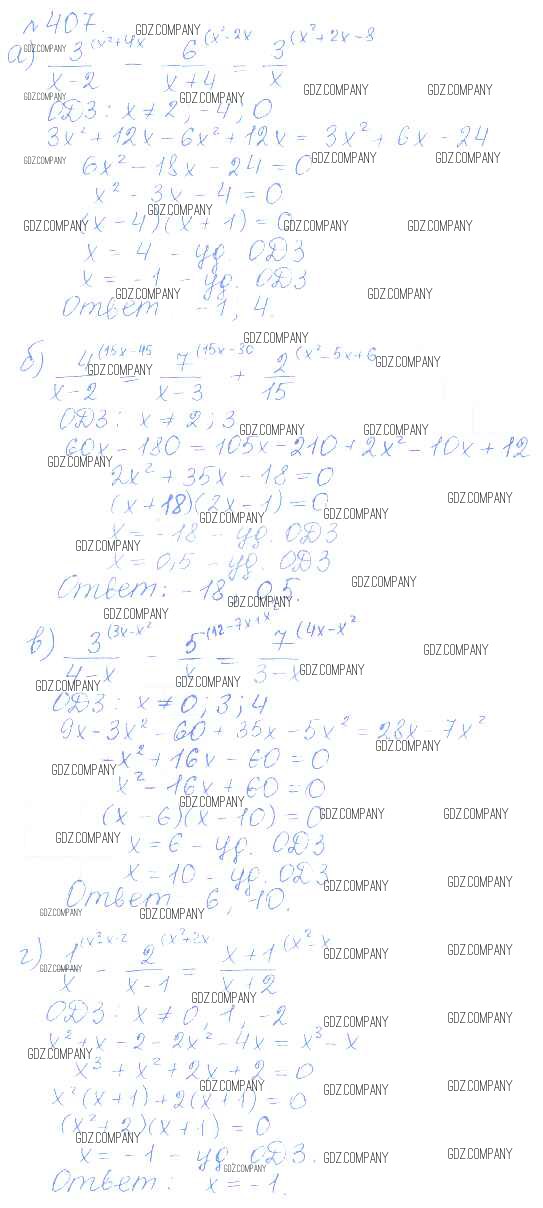 № 407.
а) 3(x²+4x / x-2 - 6(x²-2x / x+4 = 3(x²+2x-8 / x
ОДЗ: x ≠ 2, -4, 0
3x² + 12x - 6x² + 12x = 3x² + 6x - 24
6x² - 18x - 24 = 0
x² - 3x - 4 = 0
(x - 4)(x + 1) = 0
x = 4 - уд. ОДЗ
x = -1 - уд. ОДЗ
Ответ -1, 4.
б) 4(15x-45 / x-2 = 7(15x-30 / x-3 + 2(x²-5x+6 / 15
ОДЗ: x ≠ 2; 3
60x - 180 = 105x - 210 + 2x² - 10x + 12
2x² + 35x - 18 = 0
(x + 18)(2x - 1) = 0
x = -18 - уд. ОДЗ
x = 0,5 - уд. ОДЗ
Ответ: -18, 0,5.
в) 3(3x-x² / 4-x - 5(12-7x+x² / x = 7(4x-x² / 3-x
ОДЗ: x ≠ 0; 3; 4
9x - 3x² - 60 + 35x - 5x² = 28x - 7x²
-x² + 16x - 60 = 0
x² - 16x + 60 = 0
(x - 6)(x - 10) = 0
x = 6 - уд. ОДЗ
x = 10 - уд. ОДЗ
Ответ 6, 10.
г) 1(x²+x-2 / x - 2(x²+2x / x-1 = x+1(x²-x / x+2
ОДЗ: x ≠ 0, 1, -2
x² + x - 2 - 2x² - 4x = x³ - x
x³ + x² + 2x + 2 = 0
x²(x + 1) + 2(x + 1) = 0
(x² + 2)(x + 1) = 0
x = -1 - уд. ОДЗ.
Ответ: x = -1.
GDZ.COMPANY